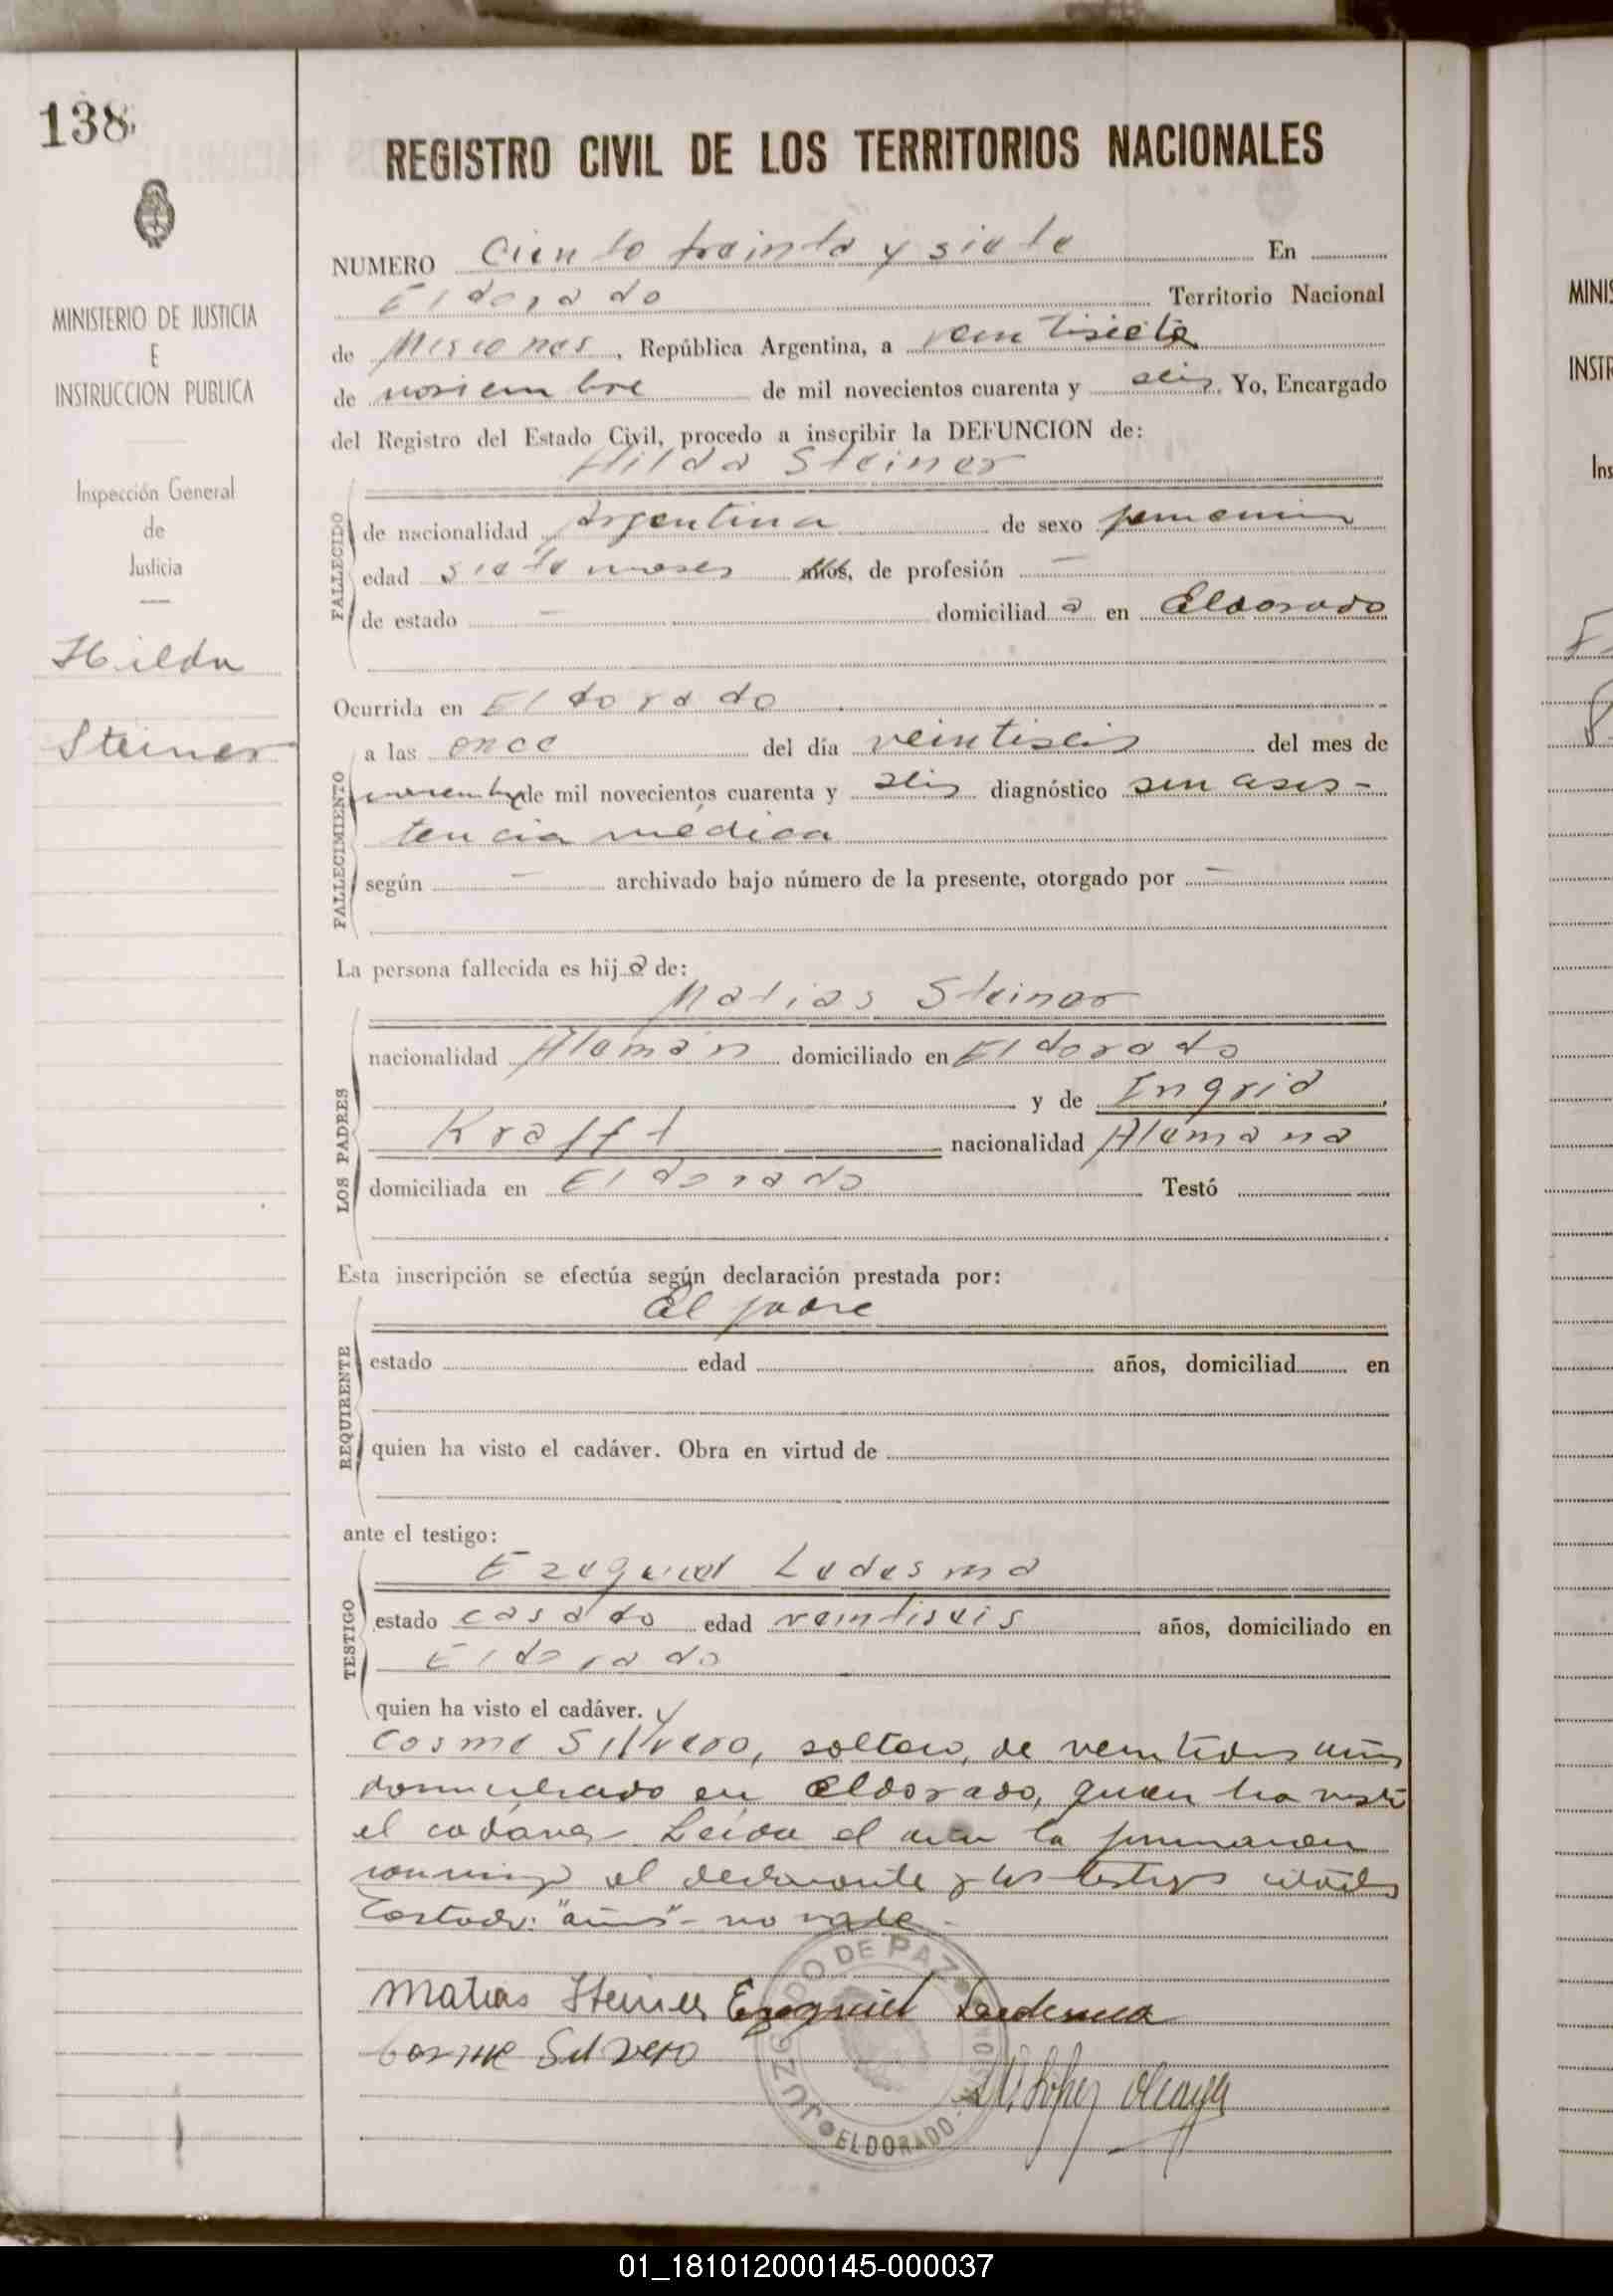 138
REGISTRO CIVIL DE LOS TERRITORIOS NACIONALES
MINISTERIO DE JUSTICIA
E
INSTRUCCION PUBLICA
Inspección General
de
Justicia
Hilda
Steiner
NUMERO Ciento treinta y siete En
Eldorado Territorio Nacional
de Misiones, República Argentina, a veintisiete
de noviembre de mil novecientos cuarenta y seis. Yo, Encargado
del Registro del Estado Civil, procedo a inscribir la DEFUNCION de:
Hilda Steiner
FALLECIDO
de nacionalidad Argentina de sexo femenino
edad siete meses años, de profesión —
de estado — domiciliad a en Eldorado
Ocurrida en Eldorado
FALLECIMIENTO
a las once del día veintiseis del mes de
noviembre de mil novecientos cuarenta y seis diagnóstico sin asis-
tencia médica
según — archivado bajo número de la presente, otorgado por —
La persona fallecida es hij a de:
Matias Steiner
LOS PADRES
nacionalidad Alemán domiciliado en Eldorado
y de Ingrid
Krafft nacionalidad Alemana
domiciliada en Eldorado Testó
Esta inscripción se efectúa según declaración prestada por:
El padre
REQUIRENTE
estado edad años, domiciliad en
quien ha visto el cadáver. Obra en virtud de
ante el testigo:
Ezequiel Ledesma
TESTIGO
estado casado edad veintiseis años, domiciliado en
Eldorado
quien ha visto el cadáver. y
Cosme Silvero, soltero, de veintidos años
domiciliado en Eldorado, quien ha visto
el cadáver Leída el acta la firmaron
conmigo el declarante y los testigos citados
Testado: "años" - no vale -
Matias Steiner Ezequiel Ledesma
Cosme Silvero
JUZGADO DE PAZ
ELDORADO
01_181012000145-000037
MINIS
INSTR
Ins